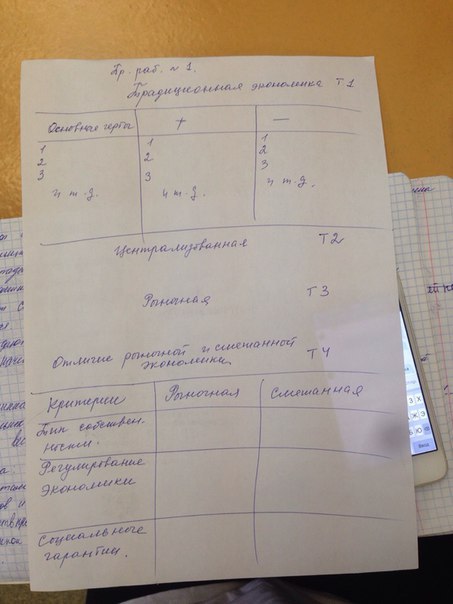 Пр. раб. № 1.
Традиционная экономика Т1
Основные черты + —
1 1 1
2 2 2
3 3 3
и т.д. и т.д. и т.д.
Централизованная Т2
Рыночная Т3
Отличие рыночной и смешанной
экономики Т4
Критерии Рыночная Смешанная
Тип собствен-
ности.
Регулирование
экономики
Социальные
гарантии.